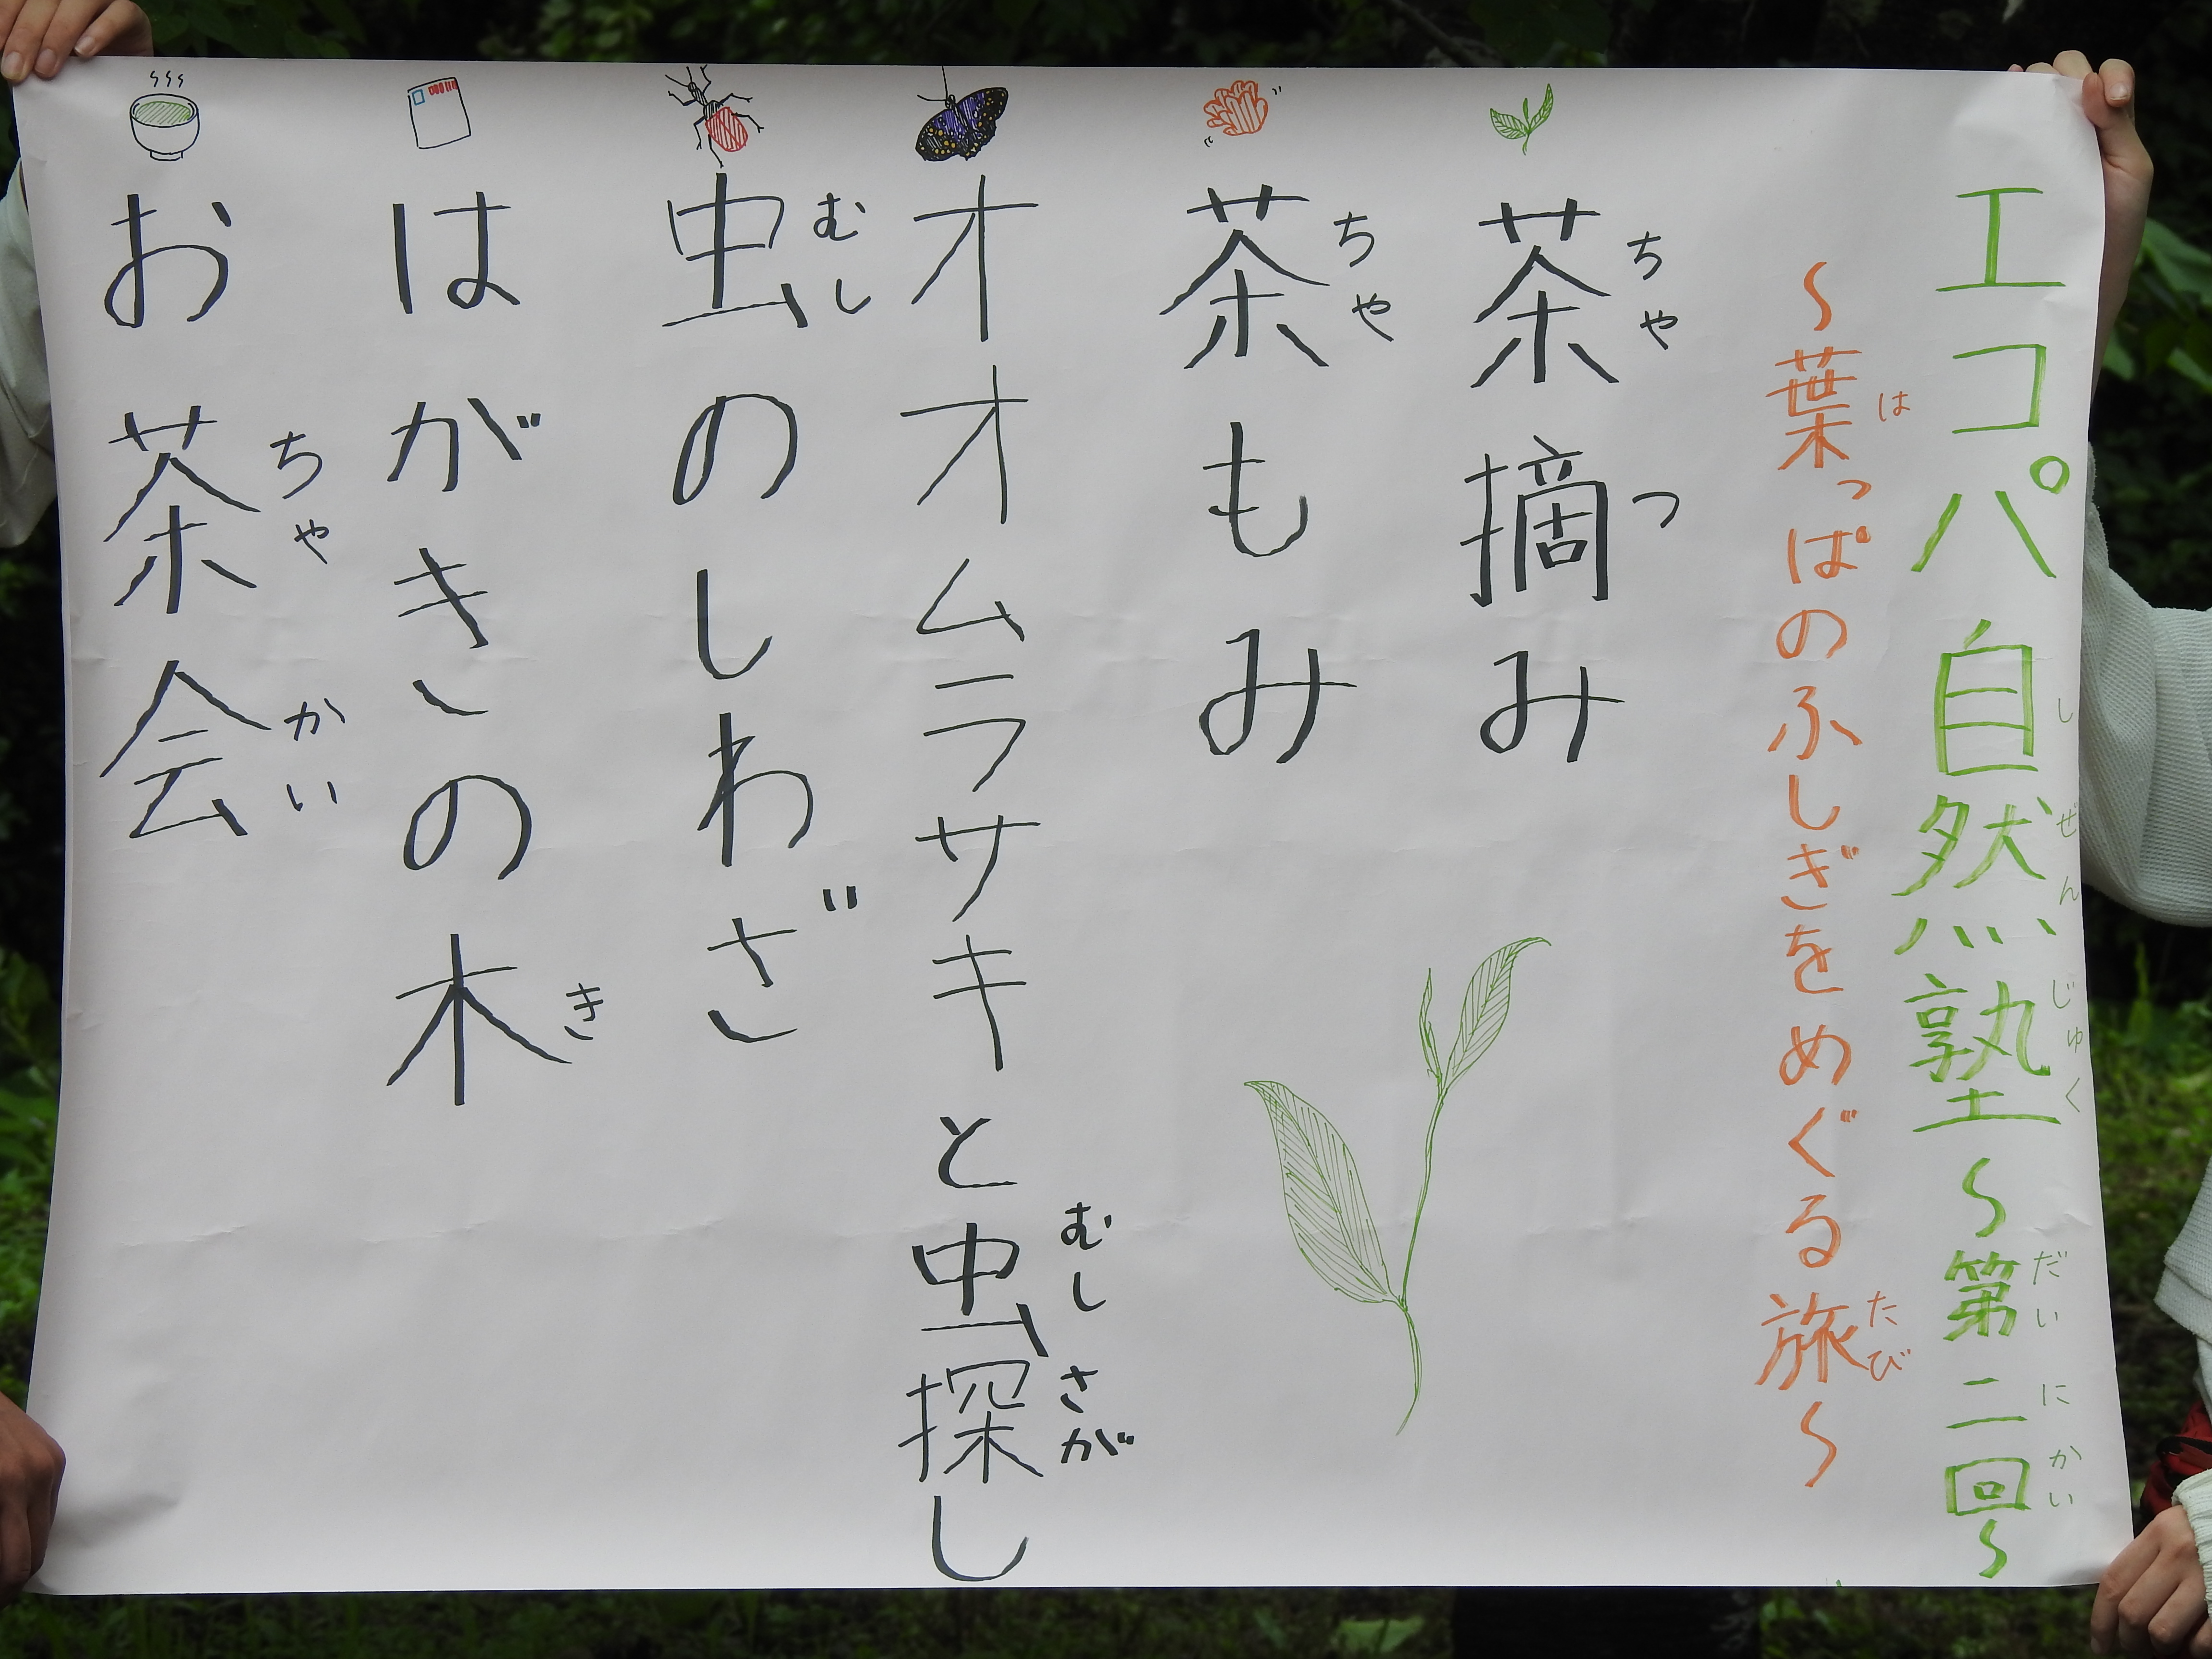 エコパ自然塾～第二回～
しぜんじゅく だいにかい
～葉っぱのふしぎをめぐる旅～
は たび
茶摘み
ちゃ つ
茶もみ
ちゃ
オオムラサキと虫探し
むし さが
虫のしわざ
むし
はがきの木
き
お茶会
ちゃ かい